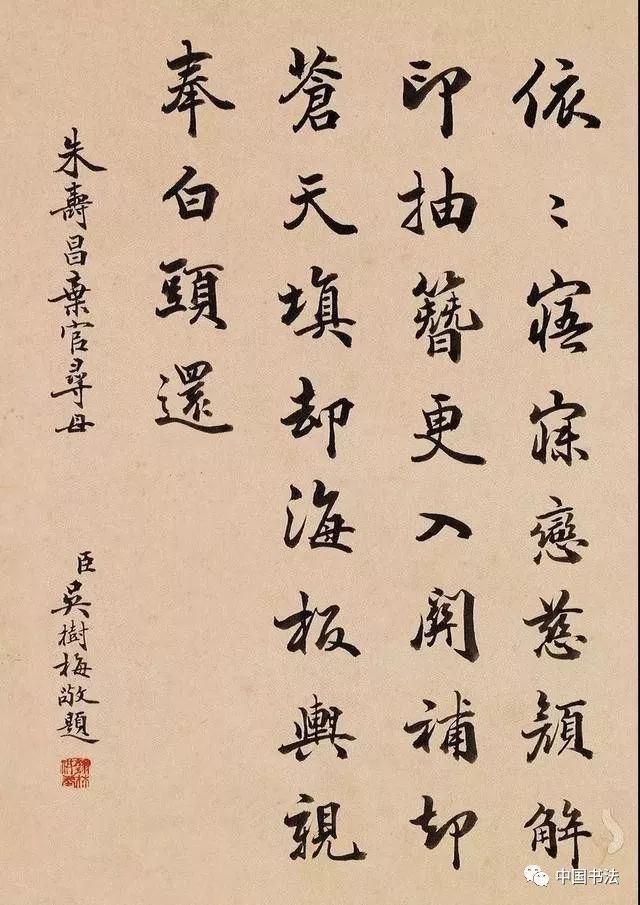 依〻寤寐戀慈顔解
印抽簪更入關補却
蒼天填却海板輿親
奉白頭還
朱壽昌棄官尋母
臣吳樹梅敬題
中国书法